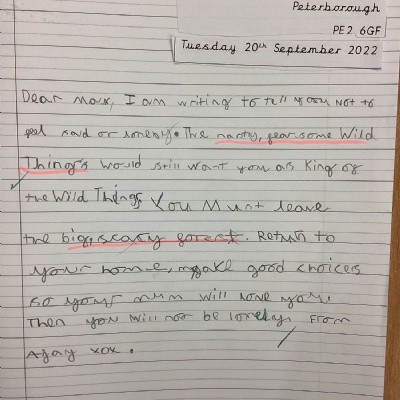 Peterborough
PE2 6GF
Tuesday 20th September 2022
Dear Max, I am writing to tell you not to
feel sad or lonely. The nasty, fearsome Wild
Things would still want you as King of
the Wild Things. You Must leave
the big, scary forest. Return to
your home, make good choices
so your mum will love you.
Then you will not be lonely. From
Ajay xox.